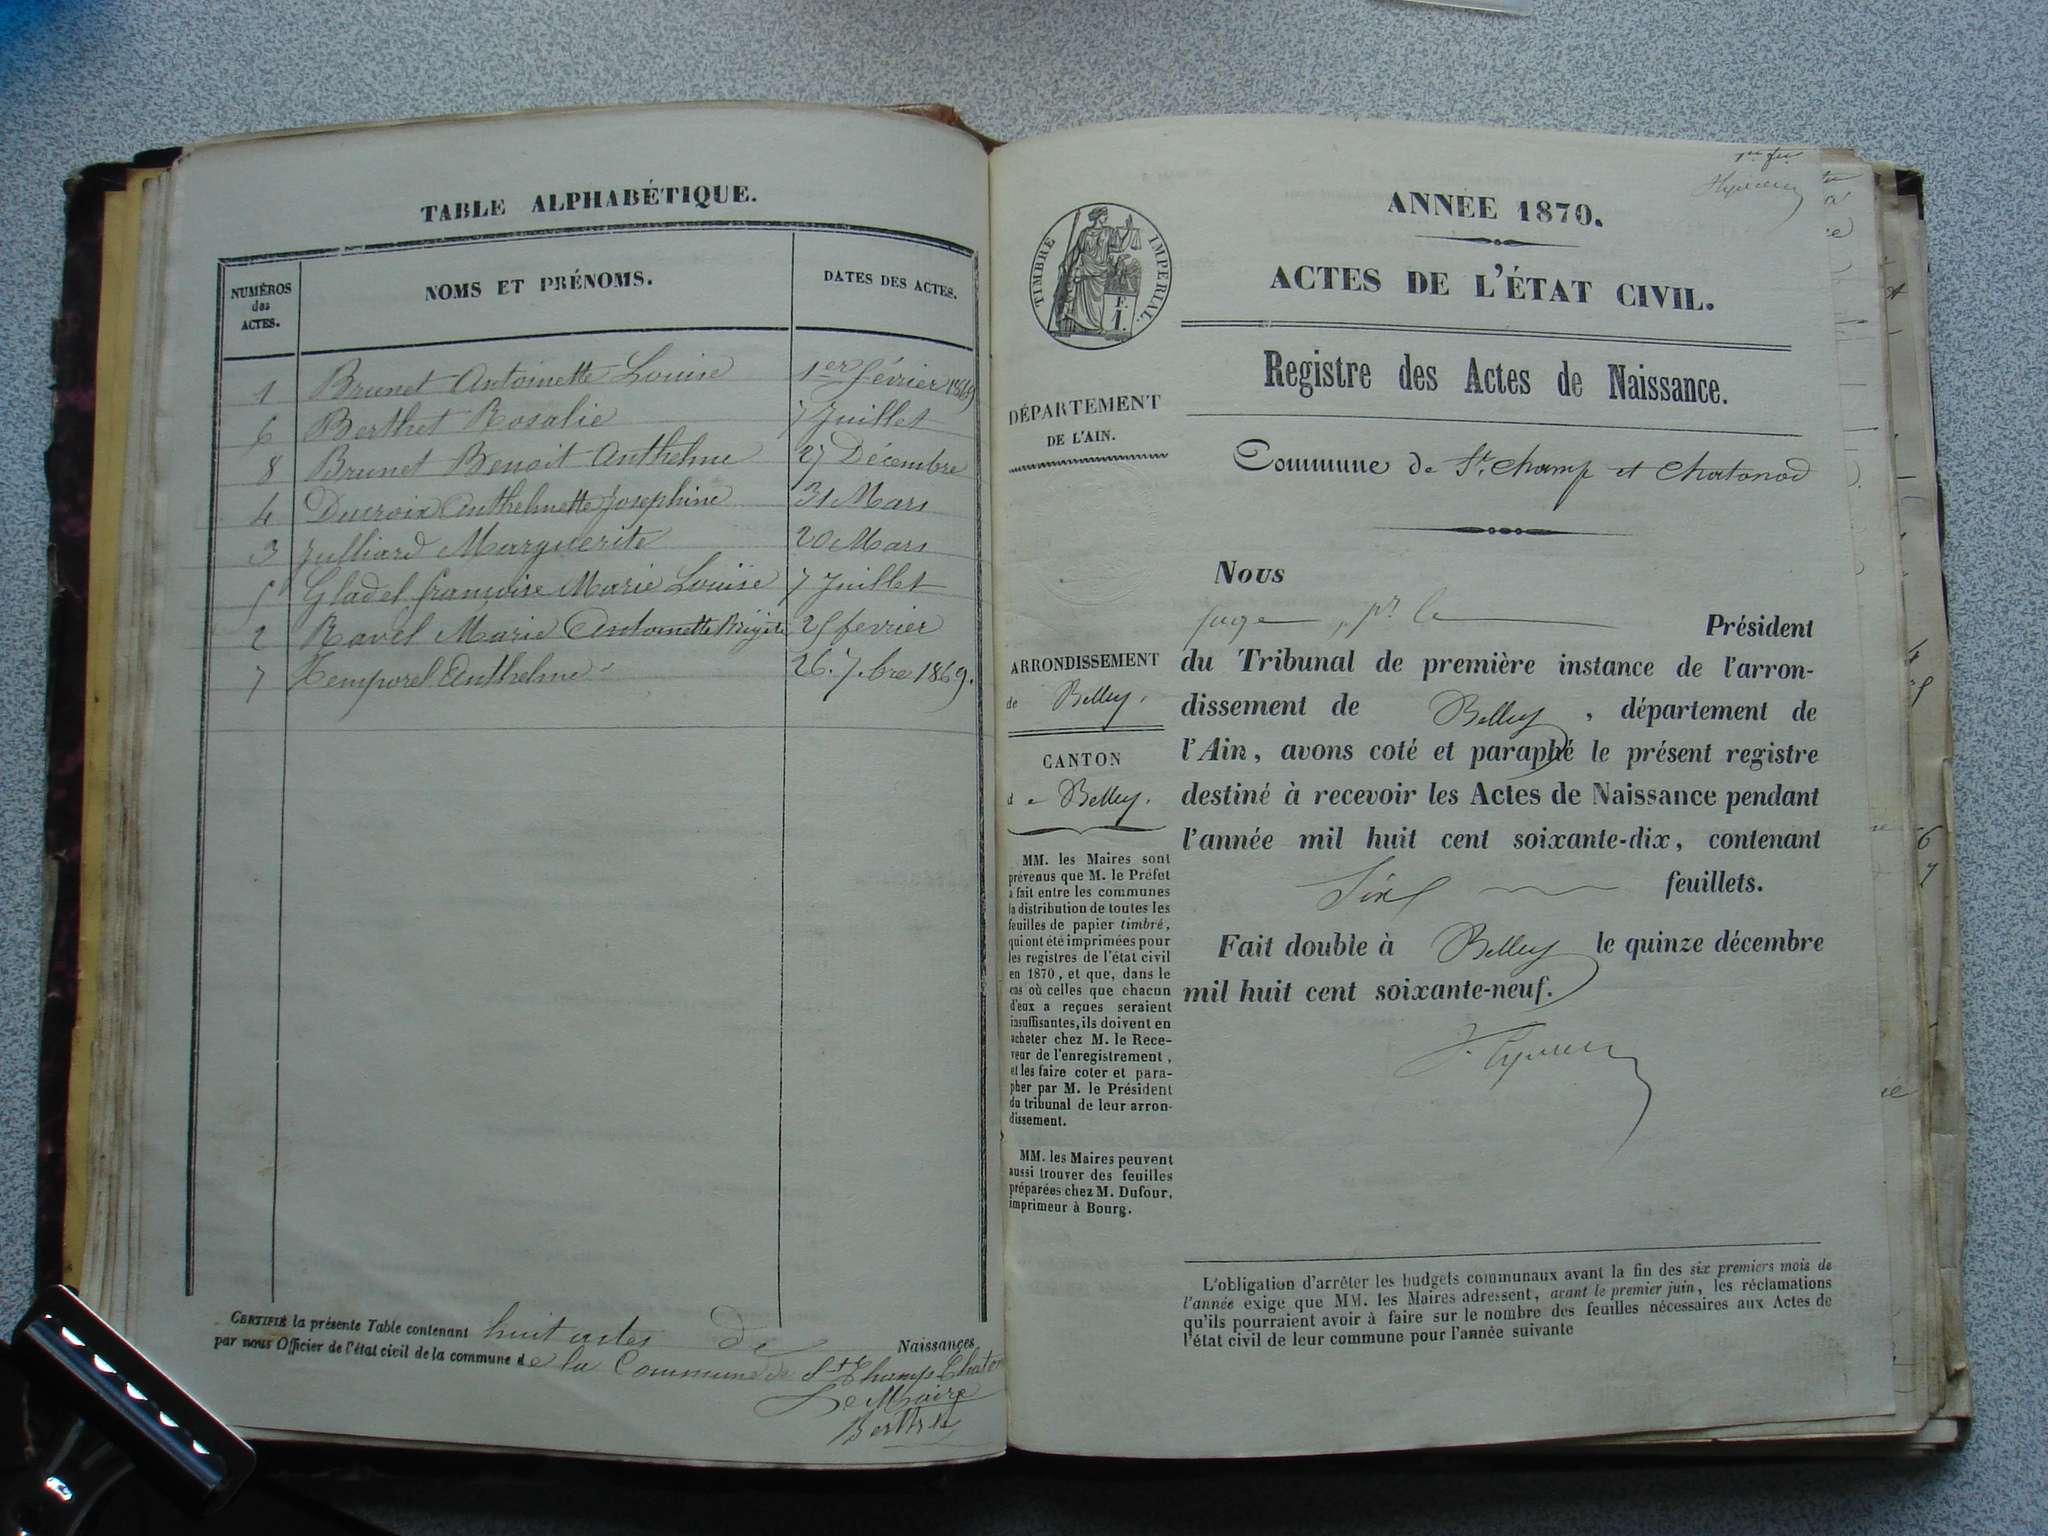 TABLE ALPHABÉTIQUE.
NUMÉROS des ACTES. NOMS ET PRÉNOMS. DATES DES ACTES.
1 Brunet Antoinette Louise 1er février 1869
6 Berthet Rosalie 7 Juillet
8 Brunet Benoit Anthelme 27 Décembre
4 Ducroix Anthelmette Josephine 31 Mars
3 Julliard Marguerite 20 Mars
5 Gladel françoise Marie Louise 7 Juillet
2 Ravel Marie Antoinette 25 fevrier
7 Temporel Anthelme 26. 7.bre 1869.
CERTIFIÉ la présente Table contenant huit actes de Naissances
par nous Officier de l'état civil de la commune de la Commune de St Champ Chaton
Le Maire
Berthet
1er
ANNÉE 1870.
ACTES DE L'ÉTAT CIVIL.
TIMBRE IMPERIAL.
Registre des Actes de Naissance.
DÉPARTEMENT
DE L'AIN.
Commune de St. Champ et Chatonod
Nous
juge pr le Président
du Tribunal de première instance de l'arron-
dissement de Belley, département de
l'Ain, avons coté et paraphé le présent registre
destiné à recevoir les Actes de Naissance pendant
l'année mil huit cent soixante-dix, contenant
Six feuillets.
Fait double à Belley le quinze décembre
mil huit cent soixante-neuf.
ARRONDISSEMENT
de Belley.
CANTON
de Belley.
MM. les Maires sont
prévenus que M. le Préfet
a fait entre les communes
la distribution de toutes les
feuilles de papier timbré,
qui ont été imprimées pour
les registres de l'état civil
en 1870, et que, dans le
cas où celles que chacun
d'eux a reçues seraient
insuffisantes, ils doivent en
acheter chez M. le Rece-
veur de l'enregistrement,
et les faire coter et para-
pher par M. le Président
du tribunal de leur arron-
dissement.
MM. les Maires peuvent
aussi trouver des feuilles
préparées chez M. Dufour,
imprimeur à Bourg.
L'obligation d'arrêter les budgets communaux avant la fin des six premiers mois de
l'année exige que MM. les Maires adressent, avant le premier juin, les réclamations
qu'ils pourraient avoir à faire sur le nombre des feuilles nécessaires aux Actes de
l'état civil de leur commune pour l'année suivante